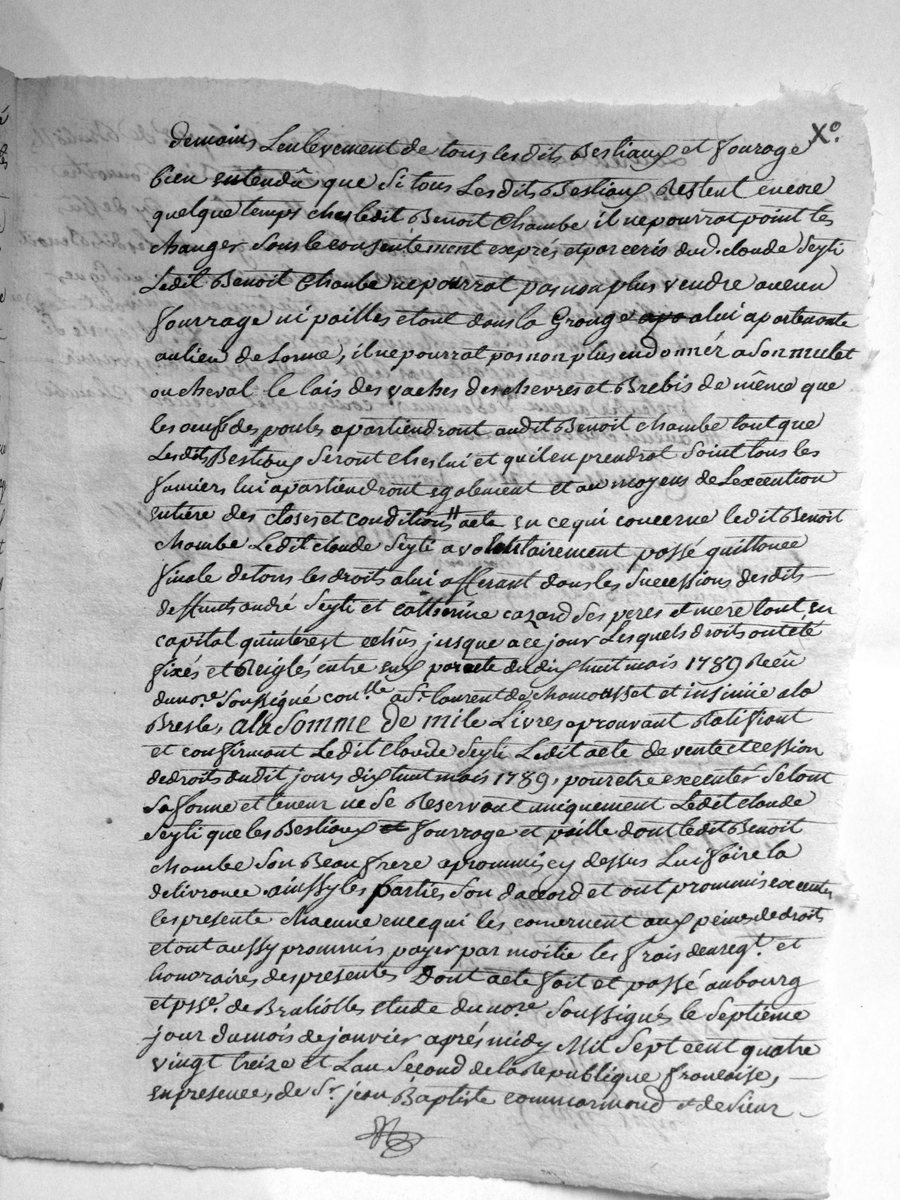 Xº.
demain Lenlevement de tous lesdits Bestiaux et fourage
bien entendû que Si tous Lesdits Bestiaux Restent encore
quelque temps chesledit Benoit Chambe il nepourrat point les
changer Sans le consentement exprés et par ecris dud. claude Seyti
Ledit Benoit Chambe nepourrat pas non plus vendre aucun
fourrage ni pailles etant dans la Grange alui apartenante
aulieu de Lorme, il nepourrat pas non plus endonnér a Son mulet
ou cheval le lais des vaches des chevres et Brebis de même que
les oeufs des poules apartiendront audit Benoit chambe tant que
Lesdits Bestiaux Seront ches lui et quil en prendrat Soint tous les
fumiers lui apartiendront egalement et au moyens de Lexecution
entiére des closes et conditions acte en ce qui concerne ledit Benoit
chambe Ledit claude Seyti a volontairement passé quittance
finale de tous les droits alui afferant dans les Successions desdits
deffunts andré Seyti et catherine cazard Ses peres et mere tant en
capital quinterest echûs jusque a ce jour Lesquels droits ont été
fixés et Reiglés entre eux par acte du dix huit mais 1789 Recû
du nore. Soussigné con.lle a St. laurent de chamousset et insinûé a la
Bresle, ala Somme de mile Livres aprouvant Ratifiant
et confirmant Ledit claude Seyti Ledit acte de vente et cession
de droits dudit jours dix huit mais 1789, pour etre executés Selont
Sa forme et teneur ne Se Reservant uniquement Ledit claude
Seyti que les Bestiaux et fourrage et paille dont ledit Benoit
chambe Son Beau frere a prommis cy dessus Lui faire la
delivrance ainssy les parties Son daccord et ont prommis executer
les presente chacune en ce qui les concernent aux peines de droits
et ont aussy prommis payer par moitie les frais denregt. et
honoraires des presentes Dont acte fait et passé au bourg
et psse. de Brulliolles etude du nore. Soussigné le Septiéme
jour du mois de janvier aprés midy Mil Sept cent quatre
vingt treize et Lan Second de la Republique francaise,
en presence, de Sr. jean Baptiste commarmond et de Sieur